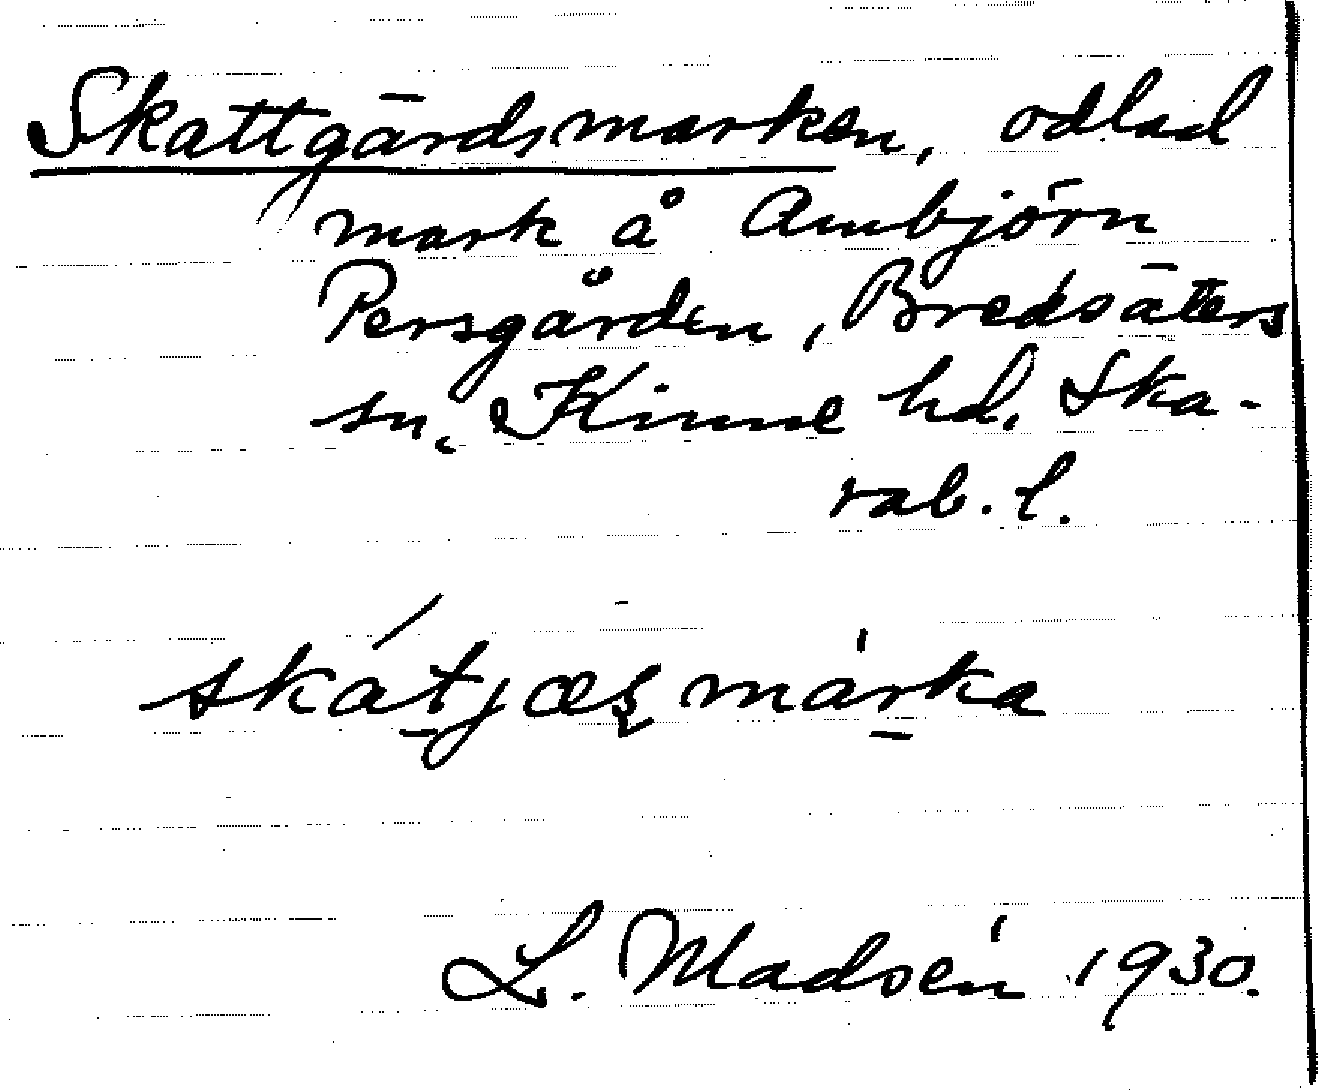 Skattgärdsmarken, odlad
mark å Ambjörn
Persgården, Bredsäters
sn, Kinne hd. Ska-
rab. l.
skátjæsmárka
L. Madsén 1930.